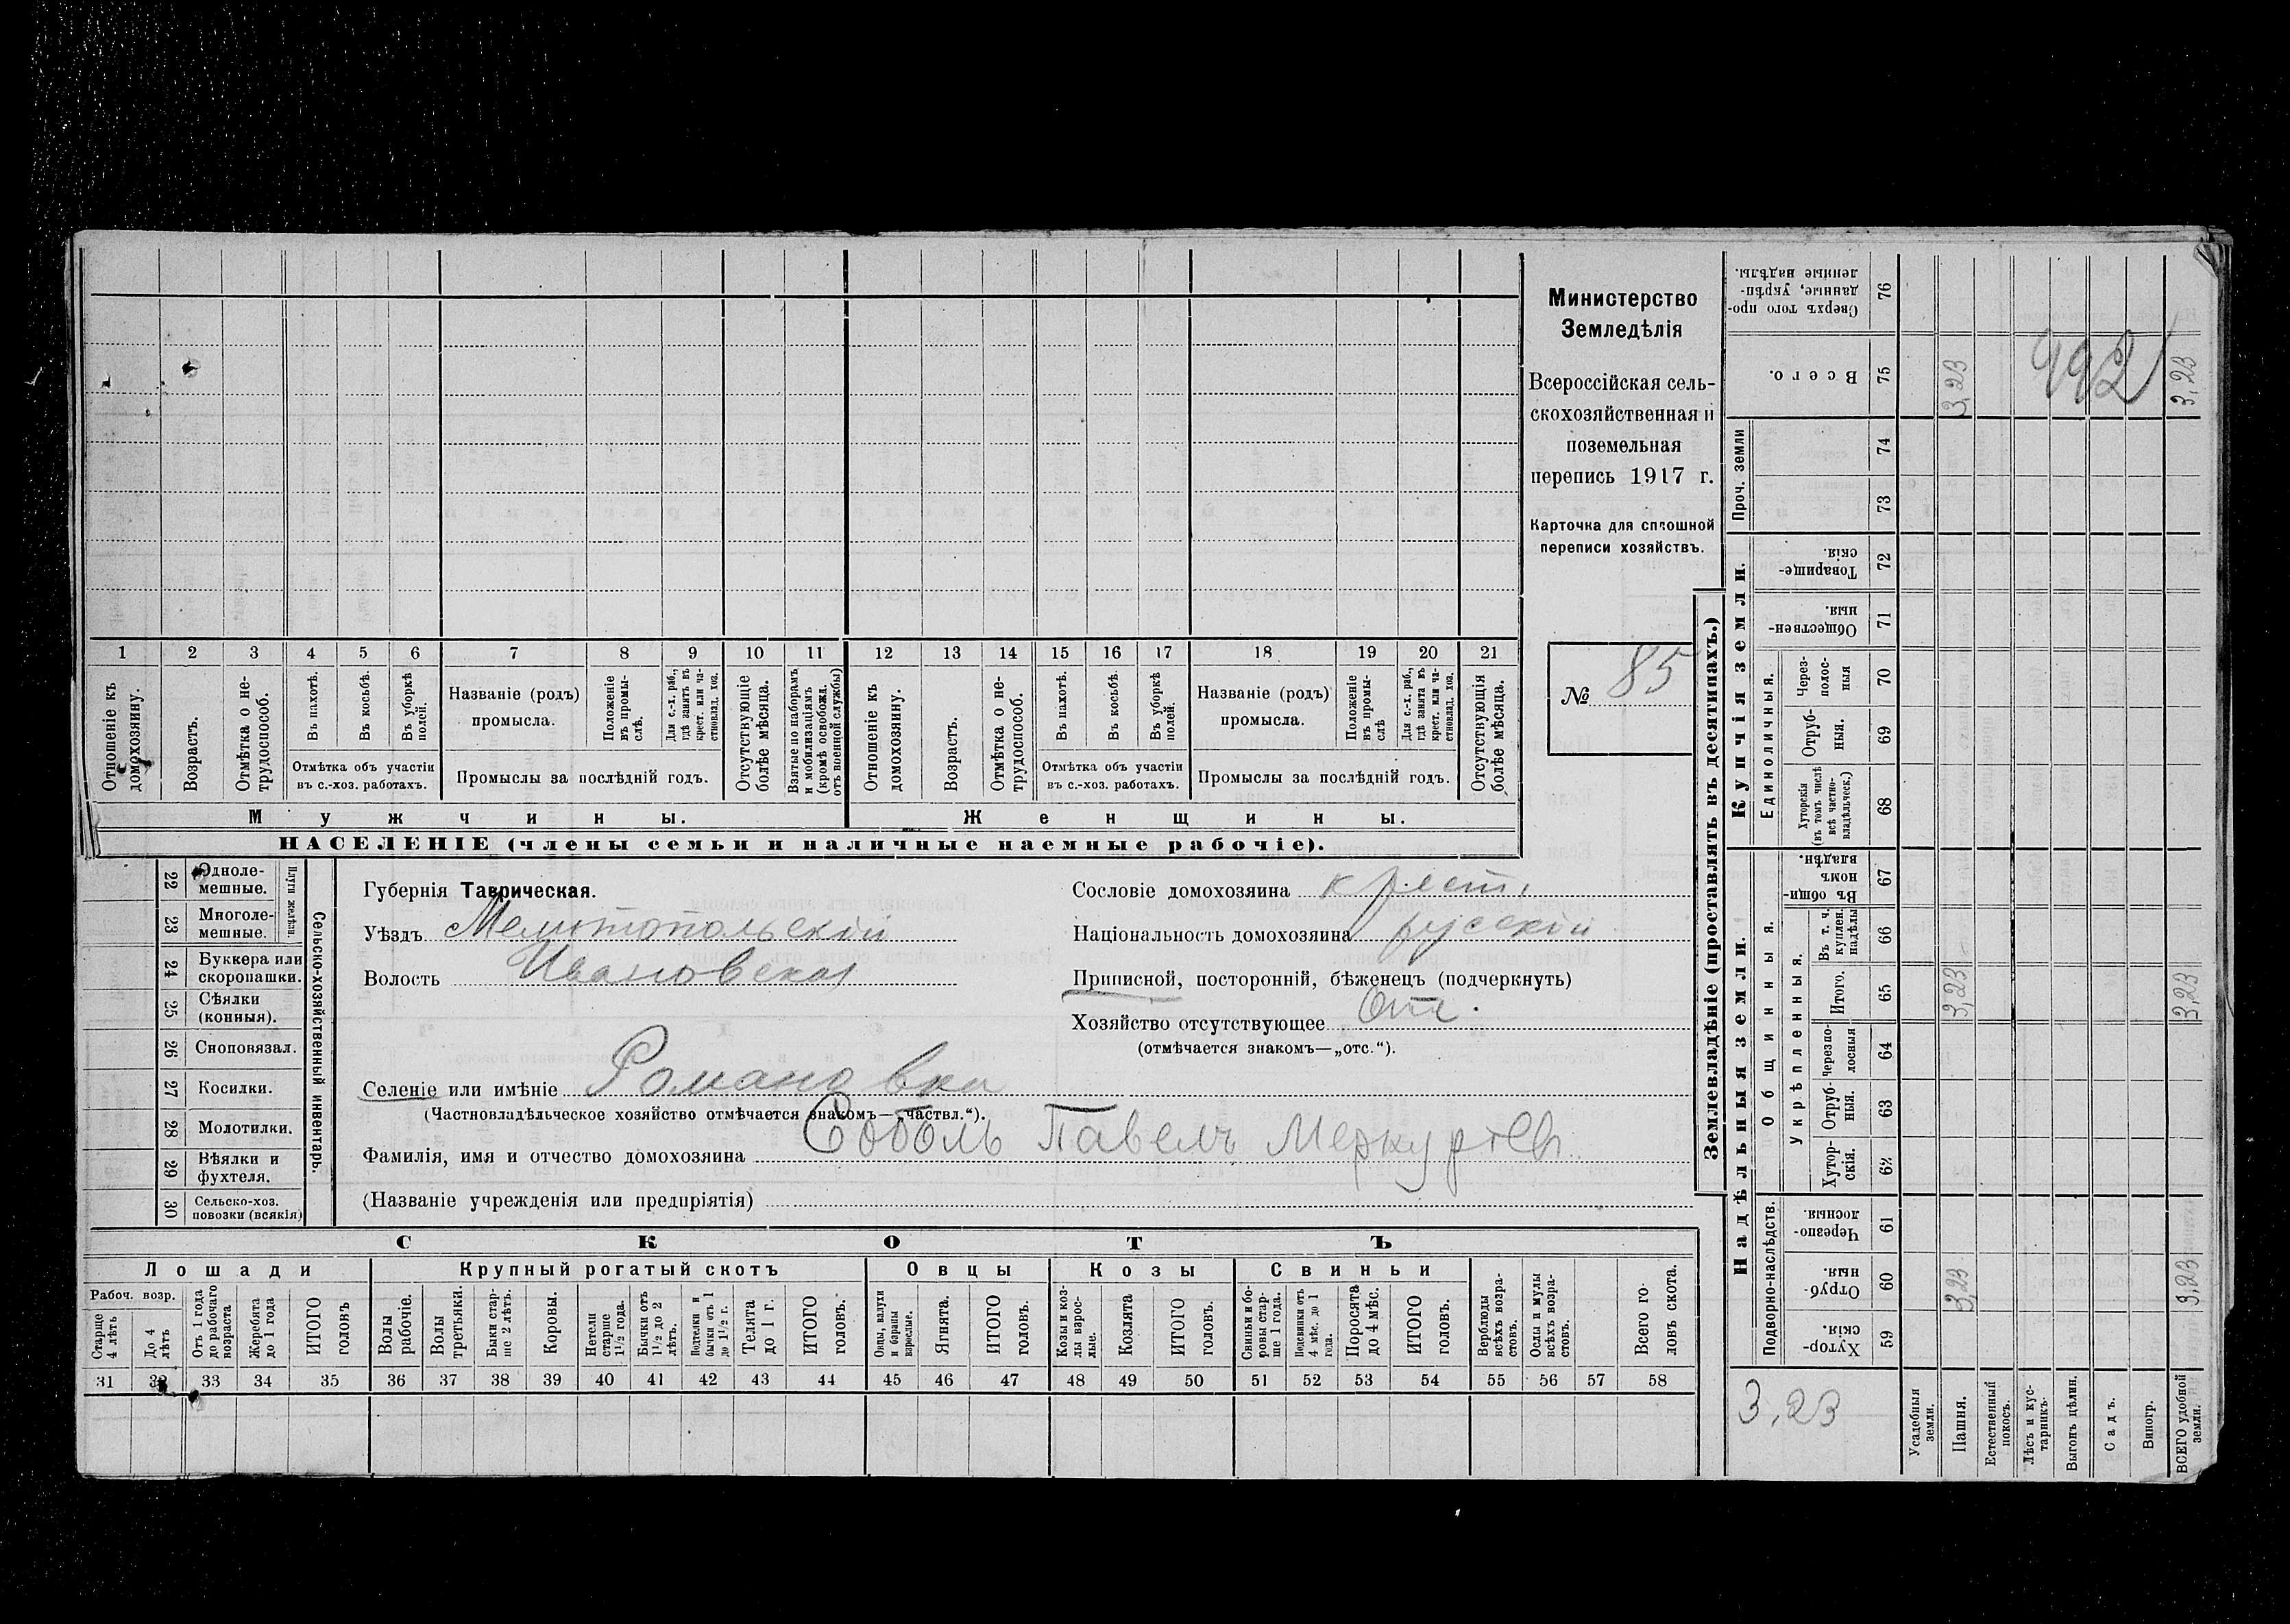 Министерство
Земледѣлія
Всероссійская сель-
скохозяйственная и
поземельная
перепись 1917 г.
Карточка для сплошной
переписи хозяйствъ.
№ 85
1 2 3 4 5 6 7 8 9 10 11 12 13 14 15 16 17 18 19 20 21
Отношеніе къ домохозяину.
Возрастъ.
Отмѣтка о не-трудоспособ.
Въ пахотѣ.
Въ косьбѣ.
Въ уборкѣ полей.
Отмѣтка объ участіи
въ с.-хоз. работахъ.
Названіе (родъ)
промысла.
Положеніе въ промы-слѣ.
Для с.-х. раб., гдѣ занятъ въ крест. или ча-стновлад. хоз.
Промыслы за послѣдній годъ.
Отсутствующіе болѣе мѣсяца.
Взятые по наборамъ и мобилизаціямъ (кромѣ освобожд. отъ военной службы)
Отношеніе къ домохозяину.
Возрастъ.
Отмѣтка о не-трудоспособ.
Въ пахотѣ.
Въ косьбѣ.
Въ уборкѣ полей.
Отмѣтка объ участіи
въ с.-хоз. работахъ.
Названіе (родъ)
промысла.
Положеніе въ промы-слѣ
Для с.-х. раб., гдѣ занята въ крест. или ча-стновлад. хоз.
Промыслы за послѣдній годъ.
Отсутствующія болѣе мѣсяца.
Мужчины.
Женщины.
НАСЕЛЕНІЕ (члены семьи и наличные наемные рабочіе).
22 Одноле-мешные.
23 Многоле-мешные.
Плуги желѣзн.
24 Буккера или скоропашки.
25 Сѣялки (конныя).
26 Сноповязал.
27 Косилки.
28 Молотилки.
29 Вѣялки и фухтеля.
30 Сельско-хоз. повозки (всякія)
Сельско-хозяйственный инвентарь.
Губернія Таврическая.
Уѣздъ Мелитопольскій
Волость Ивановская
Селеніе или имѣніе Романовка
(Частновладѣльческое хозяйство отмѣчается знакомъ—„частвл.“).
Фамилія, имя и отчество домохозяина Соболь Павелъ Меркурьев
(Названіе учрежденія или предпріятія)
Сословіе домохозяина крест.
Національность домохозяина русскій
Приписной, посторонній, бѣженецъ (подчеркнуть)
Хозяйство отсутствующее Отс.
(отмѣчается знакомъ—„отс.“).
СКОТЪ
Лошади
Крупный рогатый скотъ
Овцы
Козы
Свиньи
Рабоч. возр.
Старше 4 лѣтъ
До 4 лѣтъ
Отъ 1 года до рабочаго возраста
Жеребята до 1 года
ИТОГО головъ
Волы рабочіе.
Волы третьяки.
Быки стар-ше 2 лѣтъ.
Коровы.
Нетели старше 1½ года.
Бычки отъ 1½ до 2 лѣтъ.
Подтелки и бычки отъ 1 до 1½ г.
Телята до 1 г.
ИТОГО головъ.
Овцы, валухи и бараны взрослые.
Ягнята.
ИТОГО головъ.
Козы и коз-лы взрос-лые.
Козлята
ИТОГО головъ.
Свиньи и бо-ровы стар-ше 1 года.
Подсвинки отъ 4 мѣс. до 1 года.
Поросята до 4 мѣс.
ИТОГО головъ.
Верблюды всѣхъ возра-стовъ.
Ослы и мулы всѣхъ возра-стовъ.
Всего го-ловъ скота.
31 32 33 34 35 36 37 38 39 40 41 42 43 44 45 46 47 48 49 50 51 52 53 54 55 56 57 58
Землевладѣніе (проставлять въ десятинахъ.)
Надѣльныя земли.
Купчія земли.
Проч. земли
Подворно-наслѣдств.
Общинныя.
Укрѣпленныя.
Единоличныя.
Сверхъ того про-данные, укрѣп-ленные надѣлы. 76
Всего. 75 3,23 3,23
992
74
73
Товарище-скія. 72
Обществен-ныя. 71
Через-полос-ныя 70
Отруб-ныя. 69
Хуторскія (въ томъ числѣ всѣ частно-владѣльческ.) 68
Въ общин-номъ владѣн. 67
Въ т. ч. куплен. надѣлы 66
Итого. 65 3,23 3,23
Черезпо-лосныя 64
Отруб-ныя. 63
Хутор-скія. 62
Черезпо-лосныя. 61
Отруб-ныя. 60 3,23 3,23
Хутор-скія. 59
3,23
Усадебныя земли.
Пашня.
Естественный покосъ.
Лѣсъ и кус-тарникъ.
Выгонъ цѣлин.
Садъ.
Виногр.
ВСЕГО удобной земли.